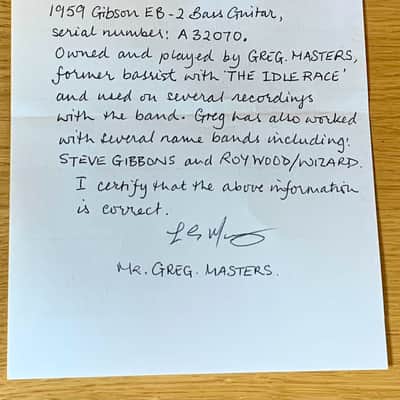 1959 Gibson EB-2 Bass Guitar,
serial number: A 32070.
Owned and played by GREG. MASTERS,
former bassist with 'THE IDLE RACE'
and used on several recordings
with the band. Greg has also worked
with several name bands including:
STEVE GIBBONS and ROY WOOD/WIZARD.
I certify that the above information
is correct.
MR. GREG. MASTERS.